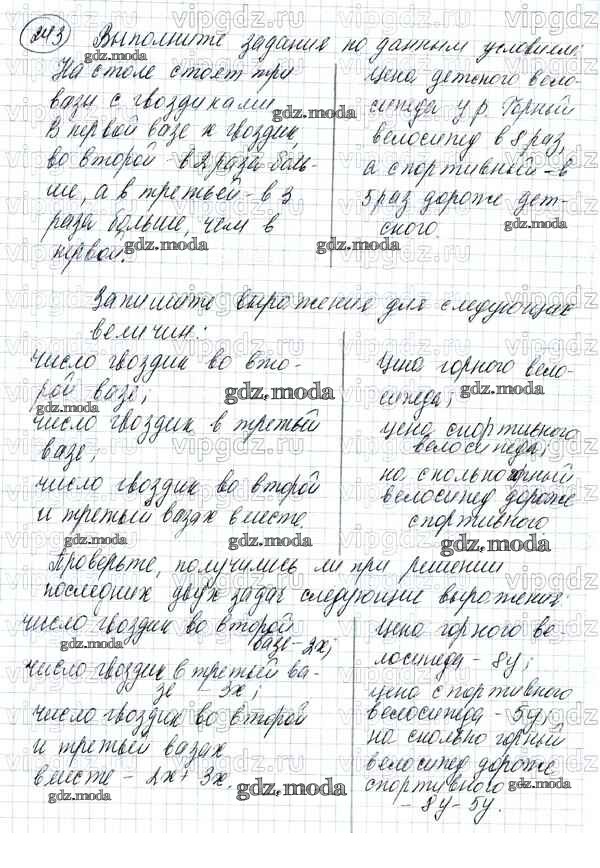 243 Выполните задания по данным условием:
На столе стоят три
вазы с гвоздиками.
В первой вазе x гвоздик,
во второй - в 2 раза боль-
ше, а в третьей - в 3
раза больше, чем в
первой.
Цена детского вело-
сипеда y р. Горный
велосипед в 8 раз,
а спортивный - в
5 раз дороже дет-
ского.
Запишите выражения для следующих
величин:
число гвоздик во вто-
рой вазе;
число гвоздик в третьей
вазе;
число гвоздик во второй
и третьей вазах вместе.
Цена горного вело-
сипеда;
цена спортивного
велосипеда;
на сколько горный
велосипед дороже
спортивного
Проверьте, получились ли при решении
последних двух задач следующие выражения:
число гвоздик во второй
вазе - 2x;
число гвоздик в третьей ва-
зе - 3x;
число гвоздик во второй
и третьей вазах
вместе - 2x + 3x.
Цена горного ве-
лосипеда - 8y;
цена спортивного
велосипеда - 5y;
на сколько горный
велосипед дороже
спортивного
- 8y - 5y.
gdz.moda
vipgdz.ru